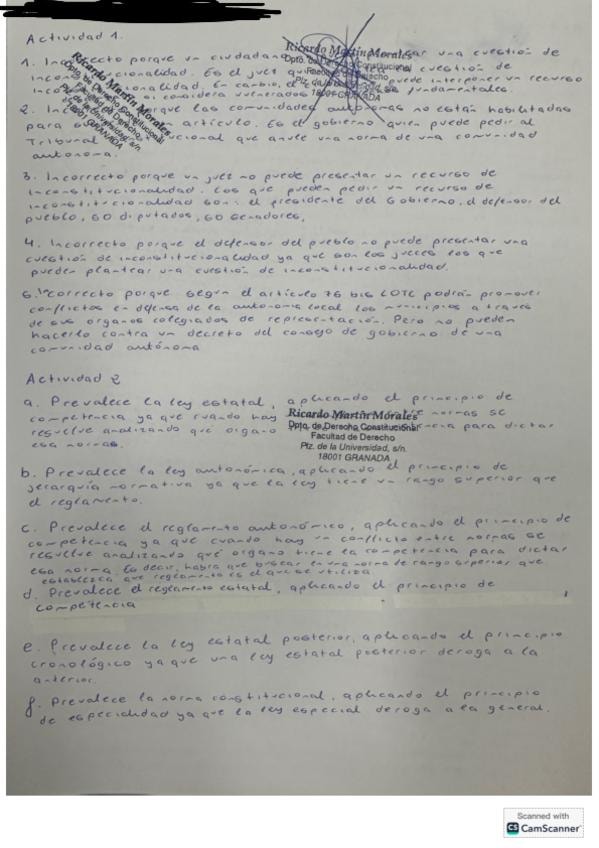 Actividad 1.
1. Incorrecto porque un ciudadano una cuestión de
inconstitucionalidad. Es el juez cuestión de
inconstitucionalidad. En cambio, el puede interponer un recurso
si considera vulnerados fundamentales.
Ricardo Martín Morales
Dpto. de Derecho Constitucional
Facultad de Derecho
Plz. de la Universidad, s/n.
18001 GRANADA
Ricardo Martín Morales
Dpto. de Derecho Constitucional
Facultad de Derecho
Plz. de la Universidad, s/n.
18001 GRANADA
2. porque las comunidades autónomas no están habilitadas
para artículo. Es el gobierno quien puede pedir al
Tribunal que anule una norma de una comunidad
autónoma.
3. Incorrecto porque un juez no puede presentar un recurso de
inconstitucionalidad. Los que pueden pedir un recurso de
inconstitucionalidad son: el presidente del Gobierno, el defensor del
pueblo, 50 diputados, 50 senadores.
4. Incorrecto porque el defensor del pueblo no puede presentar una
cuestión de inconstitucionalidad ya que son los jueces los que
pueden plantear una cuestión de inconstitucionalidad.
correcto porque según el artículo 75 bis LOTC podrán promover
conflictos en defensa de la autonomía local los municipios a través
de sus órganos colegiados de representación. Pero no pueden
hacerlo contra un decreto del consejo de gobierno de una
comunidad autónoma
Actividad 2
a. Prevalece la ley estatal, aplicando el principio de
competencia ya que cuando hay normas se
resuelve analizando que órgano para dictar
esa normas.
Ricardo Martín Morales
Dpto. de Derecho Constitucional
Facultad de Derecho
Plz. de la Universidad, s/n.
18001 GRANADA
b. Prevalece la ley autonómica, aplicando el principio de
jerarquía normativa ya que la ley tiene un rango superior que
el reglamento.
c. Prevalece el reglamento autonómico, aplicando el principio de
competencia ya que cuando hay un conflicto entre normas se
resuelve analizando qué órgano tiene la competencia para dictar
esa norma. Es decir, habrá que buscar en una norma de rango superior que
establezca que reglamento es el que se utiliza.
d. Prevalece el reglamento estatal, aplicando el principio de
competencia
e. Prevalece la ley estatal posterior, aplicando el principio
cronológico ya que una ley estatal posterior deroga a la
anterior.
f. Prevalece la norma constitucional, aplicando el principio
de especialidad ya que la ley especial deroga a la general.
Scanned with
CS CamScanner